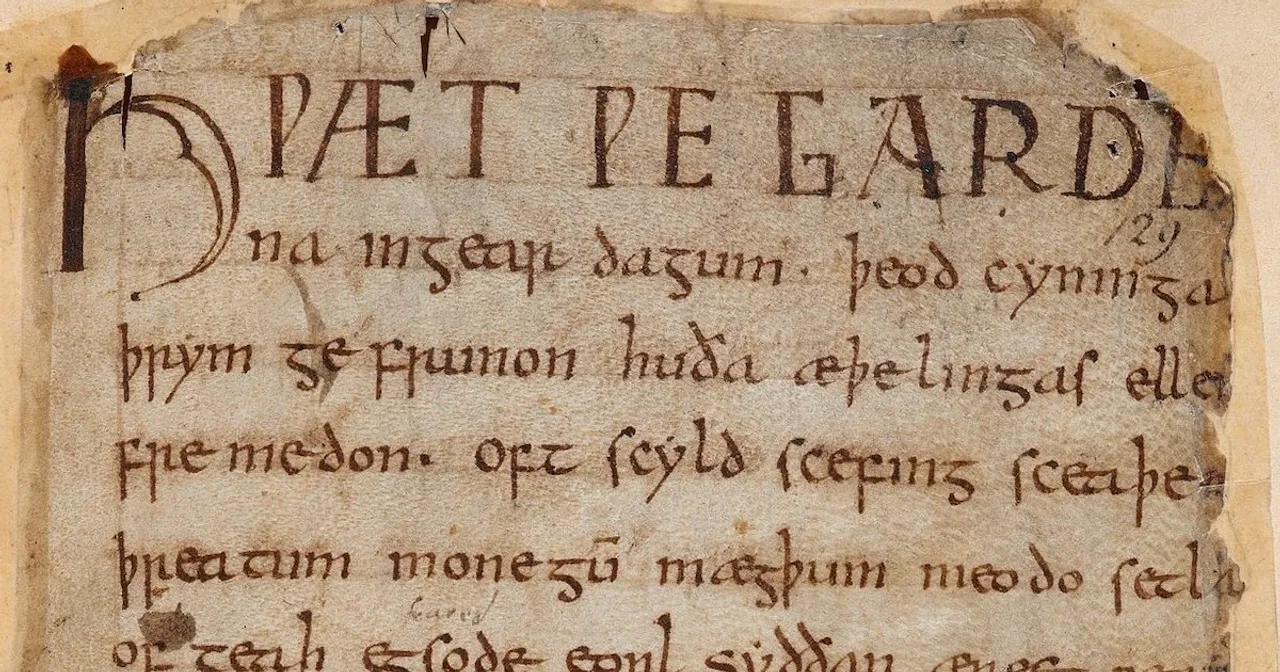 HǷÆT ǷE GARDE
129
na ingear dagum. þeod cyninga
þrym ge frunon huða æþelingas elle
fre medon. oft scyld scefing sceaþe
þreatum monegū mægþum meodo setla
of teah egsode eorl syððan